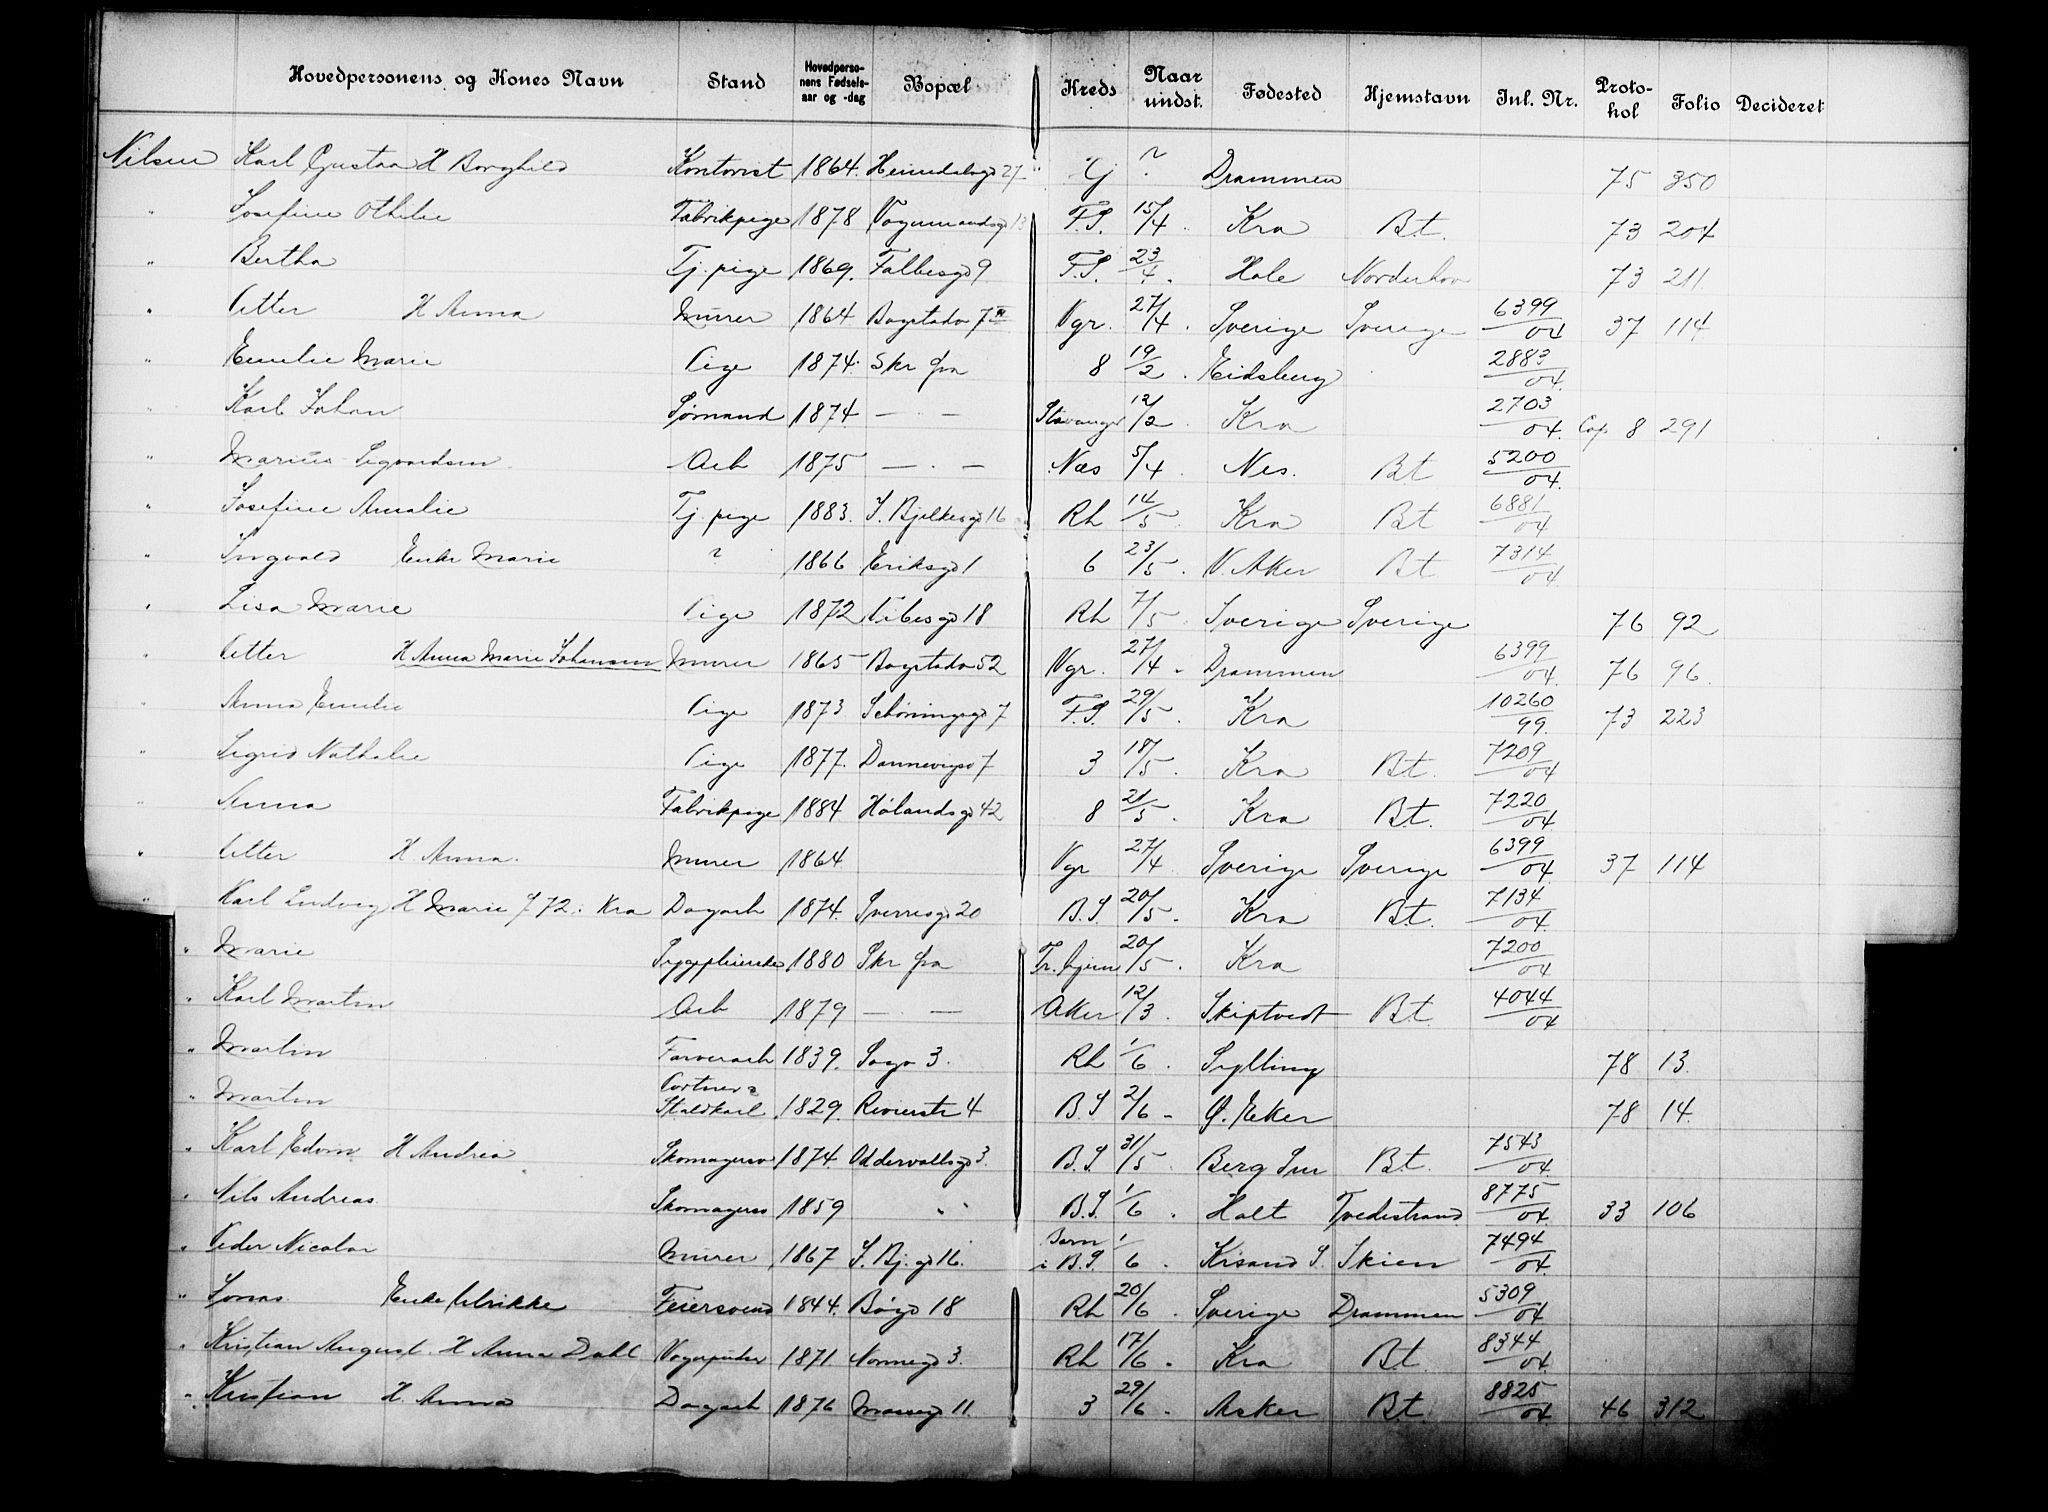 Hovedpersonens og Kones Navn Stand Hovedperso-nens Fødsels-aar og -dag Bopæl Kreds Naar undst. Fødested Hjemstavn Inl. Nr. Proto-kol Folio Decideret
Nilsen Karl Gustav H Borghild Kontorist 1864. Heimdalsgd 27 Gj ? Drammen 75 350
" Josefine Othilie Fabrikpige 1878 Vognmandsgd 13 F.S. 15/4 Kra Bt. 73 204
" Bertha Tj. pige 1869. Falbesgd 9. F.S. 23/4. Hole Norderhov 73 211
" Petter H Anna Murer 1864 Bogstadv 7 Vgr. 27/4. Sverige Sverige 6399/04 37 114
" Emilie Marie Pige 1874. Skr fra 8 19/2. Eidsberg 2883/04.
" Karl Johan Sømand 1874 — — Stavanger 12/2 Kra 2703/04. Cop. 8 291
" Marius Sigvardsen Arb 1875 — . — Næs 5/4. Nes. Bt 5200/04.
" Josefine Amalie Tj. pige 1883. J. Bjelkesgd 16 Rh 14/5. Kra Bt 6881/04
" Ingvald Enke Marie ? 1866 Eriksgd 1 6 23/5. V. Aker Bt 7314/04.
" Lisa Marie Pige 1872 Vibesgd 18 Rh 7/5. Sverige Sverige 76 92
" Petter H Anna Marie Johansen Murer 1865 Bogstadv 52 Vgr. 27/4. Drammen 6399/04. 76 96.
" Anna Emilie Pige 1873 Schøningsgd 7 F.S. 29/5. Kra 10260/99. 73 223
" Sigrid Nathalie Pige 1877. Dannevigsv 7 3 18/5. Kra Bt. 7209/04
" Anna Fabrikpige 1884 Hølandsgd 42 8 21/5. Kra Bt. 7220/04
" Petter H. Anna. Murer 1864 Vgr 27/4. Sverige Sverige 6399/04 37 114
" Karl Ludvig H Marie f 72 i Kra Dagarb 1874. Sverresgd 20 B.S 20/5. Kra Bt. 7134/04.
" Marie Sygepleierske 1880 Skr fra Tr.hjem 20/5. Kra 7200/04
" Karl Martin Arb 1879 — . — Aker 12/3. Skiptvedt Bt. 4044/04
" Martin Farverarb 1839. Sagv 3. Rh 1/6. Sylling 78 13.
" Martin Portner & Staldkarl 1829. Revierstr 4 B.S 2/6. Ø. Eker 78 14.
" Karl Edvin H Andrea Skomagersv 1874. Uddevallagd 3. B.S 31/5. Berg Sm Bt. 7543/04.
" Nils Andreas Skomagersv 1859 " " B.S. 1/6. Holt Tvedestrand 8775/04. 33 106
" Peder Nicolai Murer 1867 J. Bj. gd 16. Barn i B.S. 1/6. Krsand S. Skien 7494/04.
" Jonas Enke Ulrikke Feiersvend 1844. Bøgd 18 Rh 20/6. Sverige Drammen 5309/04.
" Kristian August. H Anna Dahl Vognfører 1871 Nonnegd 3. Rh 17/6. Kra Bt. 8344/04.
" Kristian H. Anna Dagarb 1876 Mossegd 11. 3 29/6. Asker Bt. 8825/04. 46 312